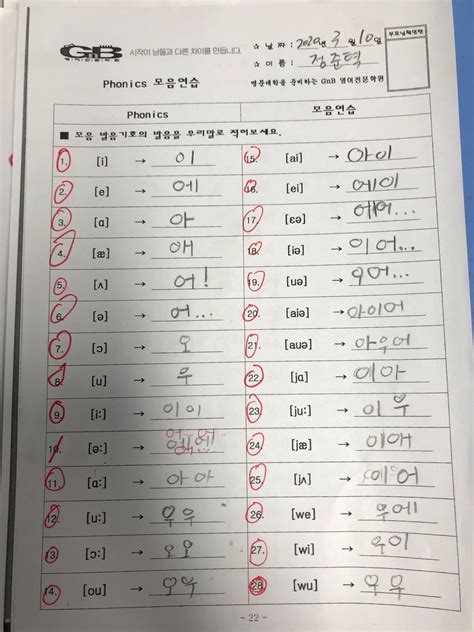 GnB
시작이 남들과 다른 차이를 만듭니다.
☆ 날 짜 : 2020년 3월 10일
☆ 이 름 : 정준혁
Phonics 모음연습
명문대학을 준비하는 GnB 영어전문학원
Phonics 모음연습
■ 모음 발음기호의 발음을 우리말로 적어보세요.
1. [i] → 이 15. [ai] → 아이
2. [e] → 에 16. [ei] → 에이
3. [ɑ] → 아 17. [ɛə] → 에어...
4. [æ] → 애 18. [iə] → 이어...
5. [ʌ] → 어! 19. [uə] → 우어...
6. [ə] → 어... 20. [aiə] → 아이어
7. [ɔ] → 오 21. [auə] → 아우어
8. [u] → 우 22. [jɑ] → 이아
9. [i:] → 이이 23. [ju:] → 이우
어... 어...
10. [ə:] → 에에 24. [jæ] → 이애
11. [ɑ:] → 아아 25. [jʌ] → 이어
12. [u:] → 우우 26. [we] → 우에
13. [ɔ:] → 오오 27. [wi] → 우이
14. [ou] → 오우 28. [wu] → 우우
- 22 -